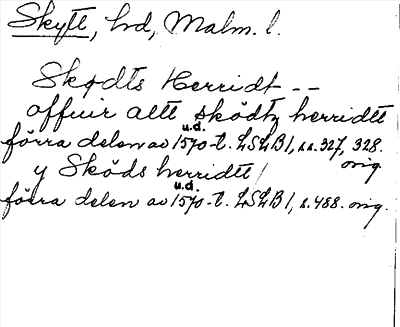 Skytt, hd, Malm. l.
Skødts Herridt --
offuir altt sködtz herridtt
u.d.
förra delen av 1570-t. LSLB 1, ss. 327, 328.
orig.
y Sköds herridtt /
u.d.
förra delen av 1570-t. LSLB 1, s. 488. orig.